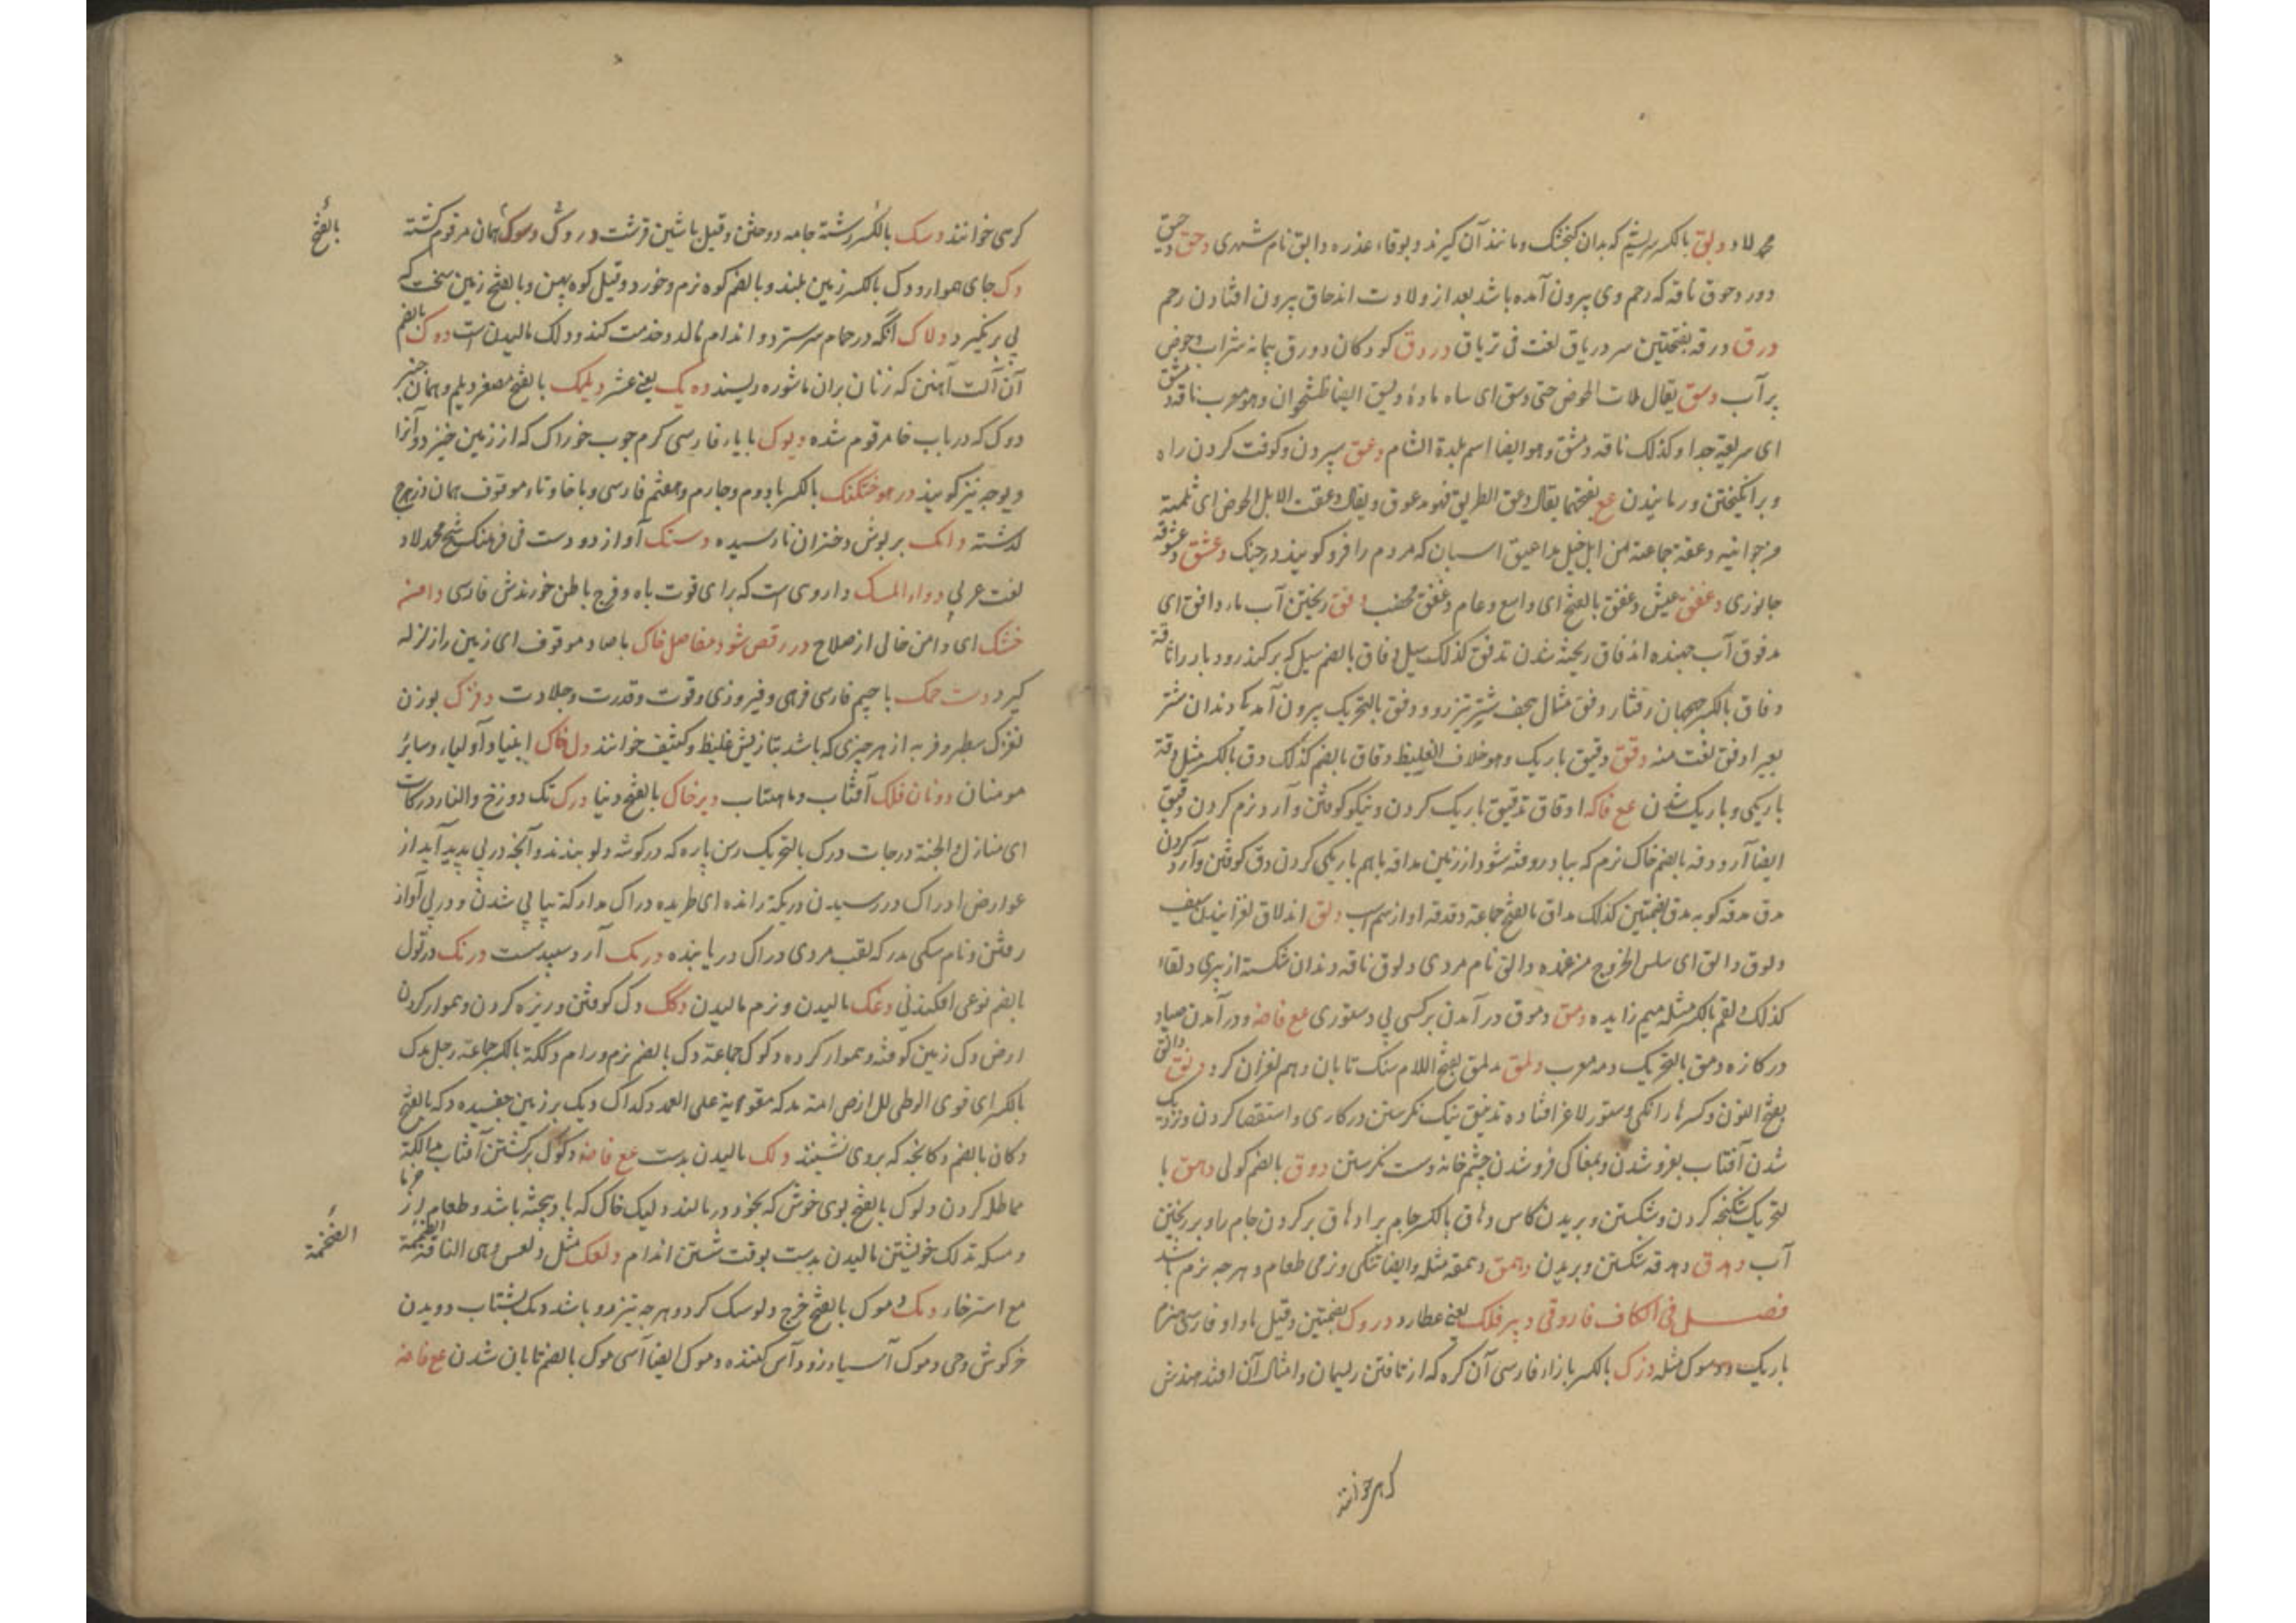 محمد لاد و دبق بالکسر سریشم که بدان کنجشک و مانند آن گیرند و بوقاء عذره دابق نام شهری دحق دحیق
دور دحوق ناقه که رحم وی بیرون آمده باشد بعد از ولادت اندحاق بیرون افتادن رحم
درق درقه بفتحتین سپر دریاق لغت فی تریاق دردق کودکان دورق پیمانه شراب و حوض
پر آب دسق یقال ملات الحوض حتی دسق ای ساه ماؤه دیسق ایضا طشتخوان و هو معرب ناقة دمشق
ای سریعة جدا و کذلک ناقه دمشق و هو ایضا اسم بلدة الشام دعق سپردن و کوفت کردن راه
و برانگیختن و رمانیدن مع بفتحها یقال دعق الطریق فهو مدعوق و یقال دعقت الابل الحوض ای ثلمته
من جوانبه و دعقة جماعة من ابل خیل مداعیق اسبان که مردم را فرو کوبند در جنگ دعشق دعشوقه
جانوری دغفق عیش دغفق بالفتح ای واسع و عام دغفق مخصب دفق ریختن آب ماء دافق ای
مدفوق آب جهنده اندفاق ریخته شدن تدفق کذلک سیل دفاق بالضم سیل که بر کند رود بار را ناقة
دفاق بالکسر جهان رفتار دفق مثال هجف شتر تیزرو و دفق بالتحریک بیرون آمدگی دندان شتر
بعیر ادفق لغت منه دقق دقیق باریک و هو خلاف الغلیظ دقاق بالضم کذلک دق بالکسر مثل دقة
باریکی و باریک شدن مع فاکه ادقاق تدقیق باریک کردن و نیکو کوفتن و آرد نرم کردن دقیق
ایضا آرد دقه بالضم خاک نرم که بباد روفته شود از زمین مداقه باهم باریکی کردن دق کوفتن و آرد کردن
مدق مدقه کوبه مدق بضمتین کذلک مداق بالفتح جماعة دقدقه اواز سم اسپ دلق اندلاق لغزانیدن سیف
دلوق دالق ای سلس الخروج من غمده دالق نام مردی دلوق ناقه دندان شکسته از پیری دلقاء
کذلک دلقم بالکسر مثله میم زایده دمق دموق در آمدن بر کسی بی دستوری مع فاضه و در آمدن صیاد
در کازه دمق بالتحریک دمه معرب دملق مدملق بفتح اللام سنک تابان و هم لغزان کرد دنق دانق
بفتح النون و کسرها دانکی و ستور لاغر افتاده تدنیق نیک نگریستن در کاری و استقصا کردن و نزدیک
شدن آفتاب بفرو شدن و بمغاکی فرو شدن چشم خانه و ست نگرستن دوق بالضم کولی دهق با
لتحریک شکنجه کردن و شکستن و بریدن کاس دهاق بالکسر جام پر ادهاق پر کردن جام را و بر ریختن
آب دهدق دهدقه شکستن و بریدن دهمق دهمقه مثله و ایضا تنکی و نرمی طعام و هر چه نرم باشد
فصل فی الکاف فاروقی دبیر فلک یعنی عطارد دروک بضمتین و قیل باواو فارسی هیزم
باریک و دموک مثله دژک بالکسر بازاء فارسی آن گره که از تافتن ریسمان و امثال آن افتد هندش
کرهی خوانند
کرهی خوانند دسک بالکسر رشته جامه دوختن و قیل باشین قرشت دروک و دسوک همان مرقوم گشته
بالفتح
دک جای هموار و دک بالکسر زمین بلند و بالضم کوه نرم و خورد و قیل کوه پهن و بالفتح زمین سخت که
پی بر نگیرد دلاک آنکه در حمام سر سترد و اندام مالد و خدمت کند و دلک مالیدن است دوک بالضم
آن آلت آهنین که زنان بران ماشوره ریسند ده یک یعنی عشر دیلمک بالفتح مصغر دیلم و همان
دوک که در باب خا مرقوم شده دیوک با یاء فارسی کرم چوب خوراک که از زمین خیزد و آنرا
دیوچه نیز گویند در هوختکنک بالکسر با دوم و چارم و هفتم فارسی و با خا و تاء موقوف همان دزهرج
گذشته دانک بربوش دختران نارسیده دستک آواز دو دست فی فرهنک شیخ محمد لاد
لغت عربی دواء المسک داروی است که برای قوت باه و فرح باطن خورندش فارسی دامن
خشک ای دامن خالی از صلاح در رقص شود مفاصل خاک با صاد موقوف ای زمین را زلزله
گیرد دست خمک با جیم فارسی فربهی و فیروزی و قوت و قدرت و جلادت دفزک بوزن
لغزک سطبر و فربه از هر چیزی که باشد بتازیش غلیظ و کثیف خوانند دل خاک انبیاء و اولیاء و سائر
مومنان دونان فلک آفتاب و ماهتاب دیر خاک بالفتح دنیا درک تک دوزخ و النار درکات
ای منازل و الجنة درجات درک بالتحریک رسن پاره که در گوشه دلو بندند و آنچه در پی پدید آید از
عوارض ادراک در رسیدن دریکة رانده ای طریده دراک مدارکة پیاپی شدن و در پی آواز
رفتن و نام سکی مدرکه لقب مردی دراک دریابنده درمک آرد سپید ست درنک در قول
بالضم نوعی افکندنی دعک مالیدن و نرم مالیدن دکک دک کوفتن و ریزه کردن و هموار کردن
ارض دک زمین کوفته و هموار کرده دکوک جماعة دک بالضم نرم و رام دککة بالکسر جماعة رجل مدک
بالکسر ای قوی الوطی للارض امة مدکه مقویة علی العمل دکداک ریک بر زمین چفسیده دکه بالفتح
دکان بالضم دکانچه که بر وی نشینند دلک مالیدن بدست مع فاضه دلوک برگشتن آفتاب مدالکة
مماطله کردن دلوک بالفتح بوی خوش که بخود در مالند دلیک خاک که باد بیخته باشد و طعام از خرما
و مسکه تدلک خویشتن مالیدن بدست بوقت شستن اندام دلعک مثل دلعس و هی الناقة الضخمة
الضخمة
مع استرخاء دمک دموک بالفتح چرخ دلو سبک گرد و هر چه تیزرو باشد دمک بشتاب دویدن
خرگوش وحی و دموک آسیاء زود آس کننده دموک ایضا آسی موک بالضم تابان شدن مع فاضه